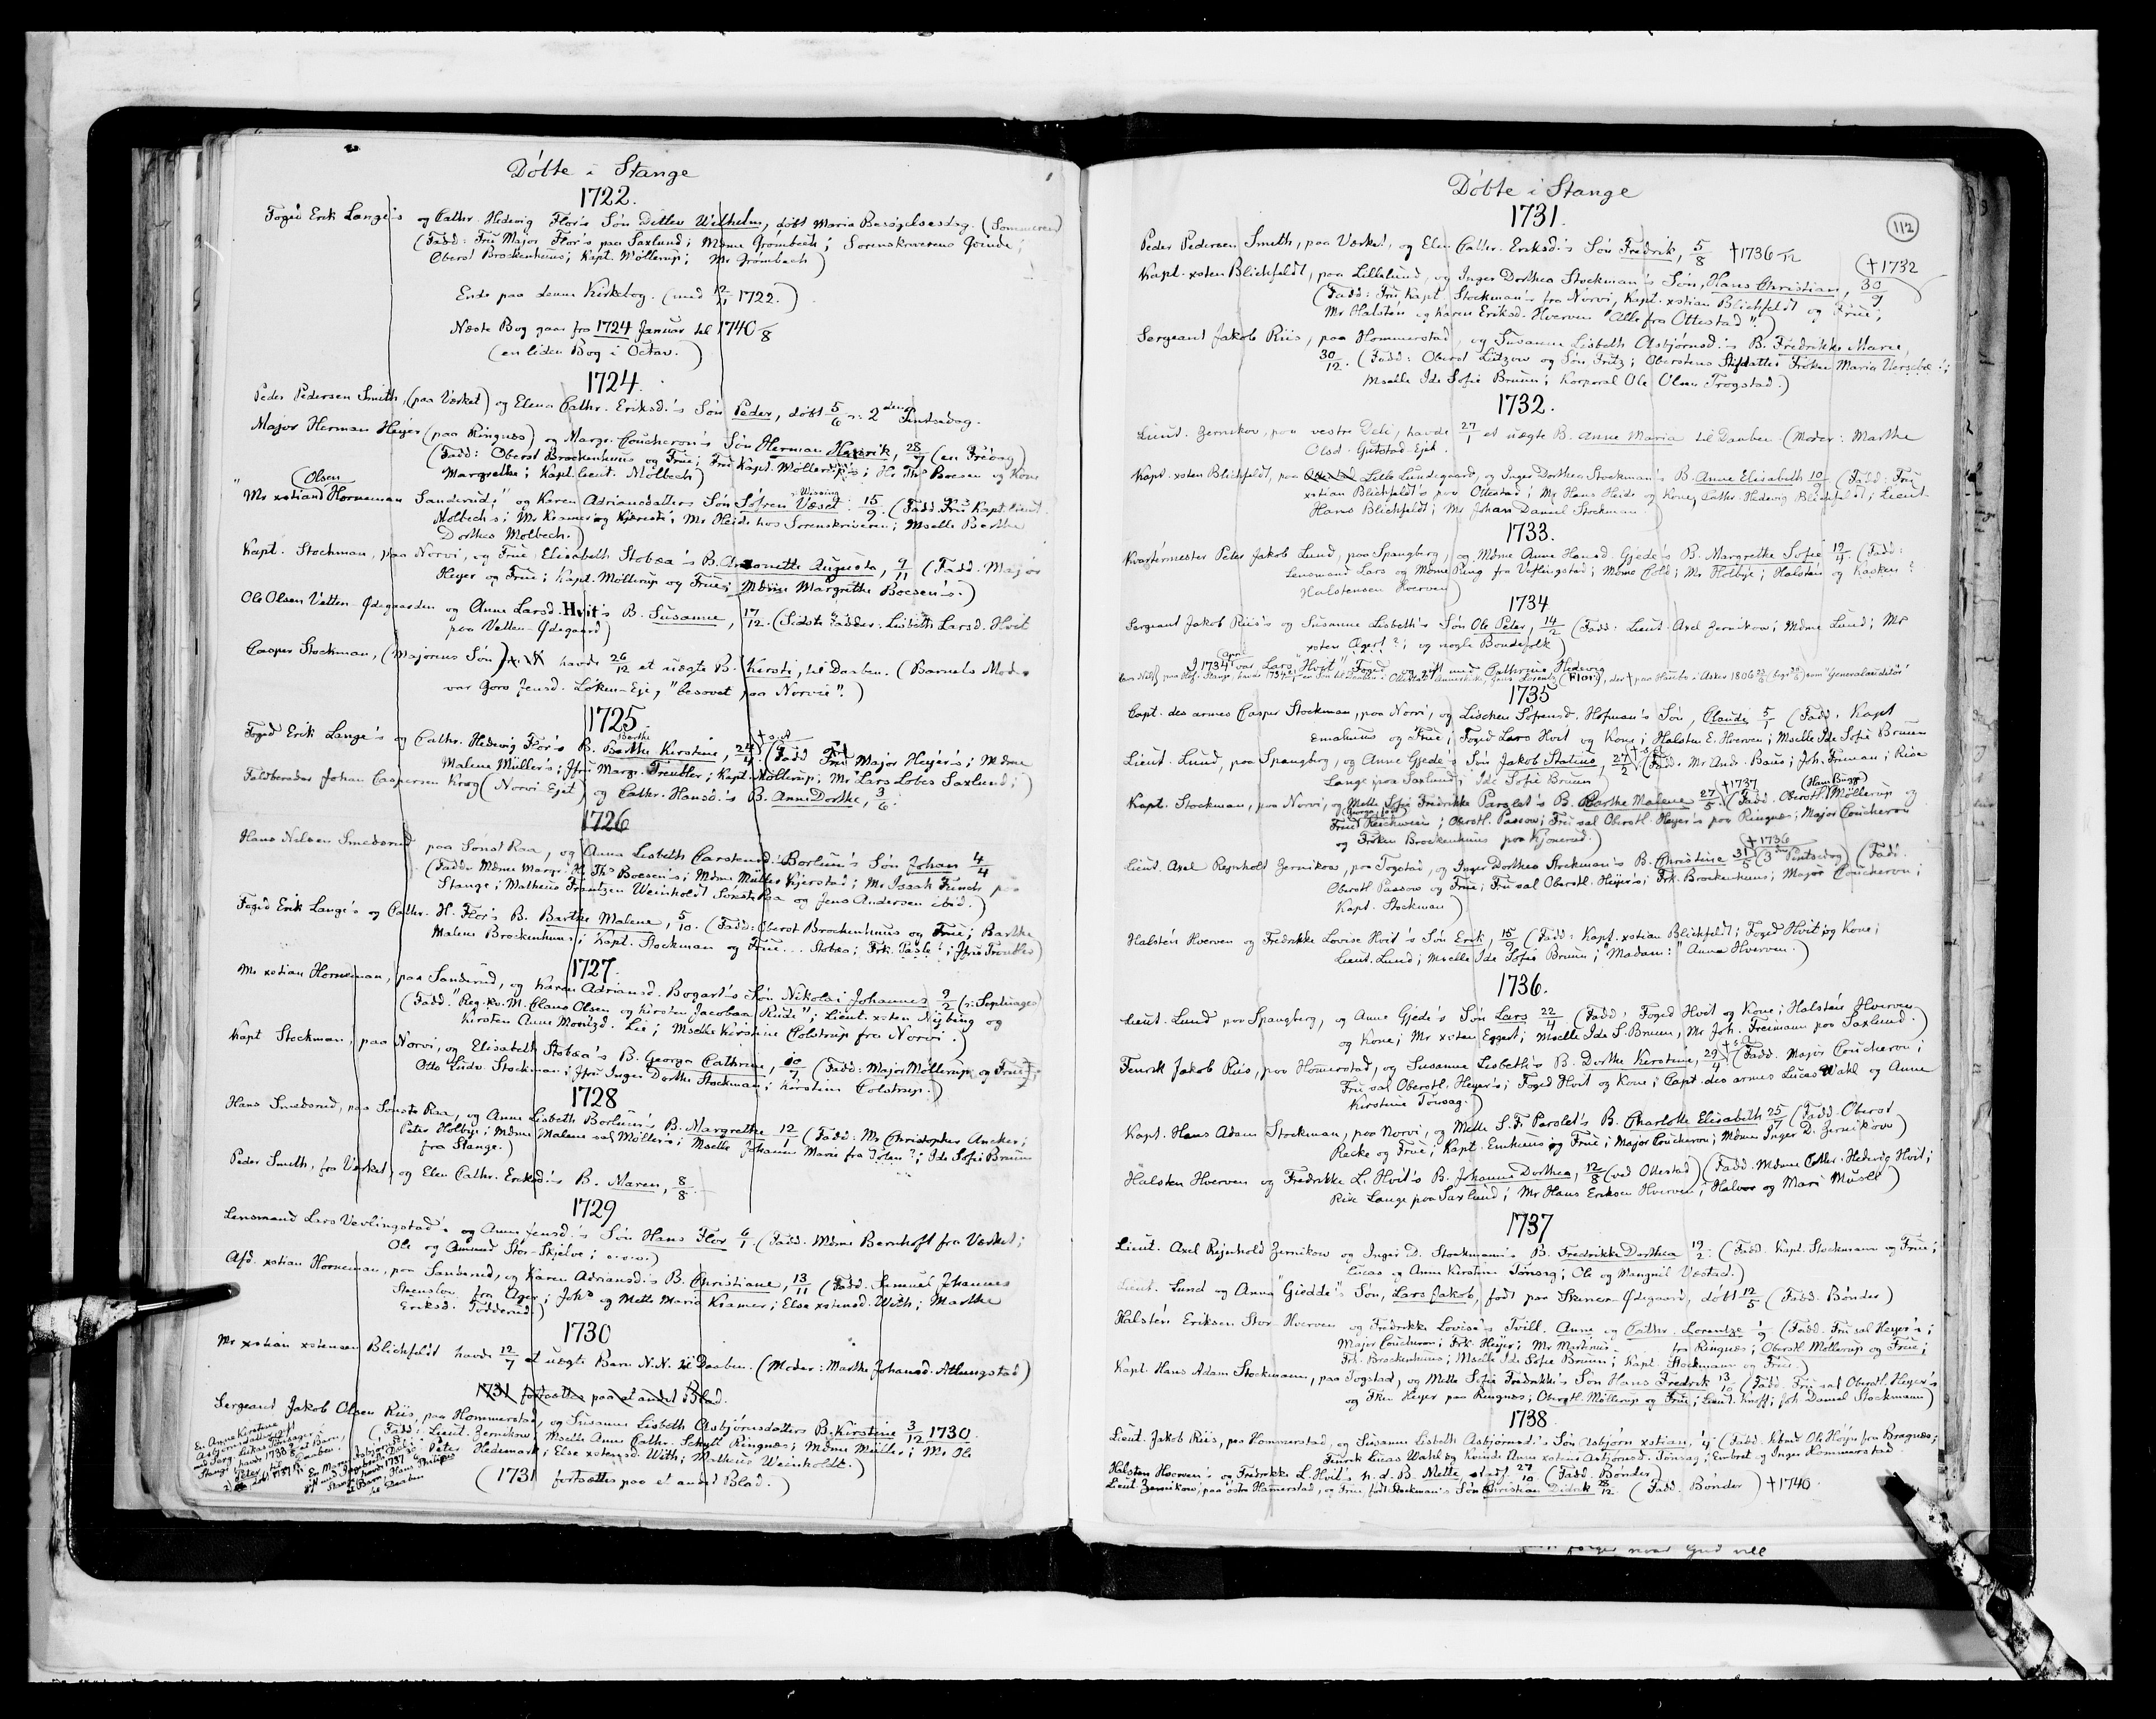 Döbte i Stange
1722.
Foged Erik Lange's og Cathr. Hedevig Flor's Sön Ditlev Wilhelm, döbt Maria Besøgelsesdag. (Sommeren)
(Fadd: Frü Major Flor's paa Saxlund; Mdme Grömbech; Sorenskriverens Qvinde;
Oberst Brockenhuus; Kapt. Möllerup; Mr Grömbech)
Ende paa denne Kirkebog. (med 12/11 1722.)
Næste Bog gaar fra 1724 Januar til 1740 /8
(en liden Bog i Octav.)
1724.
Peder Pedersen Smith, (paa Værket) og Elena Cathr. Eriksd.'s Sön Peder, döbt 5/6 2den Pintsedag.
Major Herman Heyer (paa Ringnes) og Margr. Coucheron's Sön Herman Henrik, 28/7 (en Fredag)
(Fadd: Oberst Brockenhuus og Frue; Frü Kapt. Möllerup's; Hr. Ths Boesen og Kone
Margrethe; Kapt. lieut. Molbech)
(Olsen
"Mr xstian Horneman Sanderud;" og Karen Adriansdatters Sön Söfren Wissing Væset: 15/9. (Fadd. Frü Kapt. lieut.
Molbech's; Mr Kramer og Kjæreste; Mr Heide hos Sorenskriveren; Mselle Barthe
Dorthea Molbech.)
Kapt. Stockman, paa Norvi, og Frue Elisabeth Stobæa's B. Antonette Augusta, 9/11 (Fadd. Major
Heyer og Frue; Kapt. Möllerup og Frue; Mdme Margrethe Boesen's.)
Ole Olsen Vetten-Ødegaarden og Anne Larsd. Hvit's B. Susanne, 17/12. (Sidste Fadder: Lisbeth Larsd. Hvit
paa Vetten-Ødegaard)
Casper Stockman, (Majorens Sön) havde 26/12 et uægte B. Kirsti, til Daaben. (Barnets Moder
var Goro Jensd. Löken-Eje, "besovet paa Norvi".)
1725.
Foged Erik Lange's og Cathr. Hedevig Flor's B. Barthe Kirstine, 24/4 † s. A. (Fadd Frü Major Heyer's; Mdme
Malene Müller's; Jfru Margr. Treubler; Kapt. Möllerup; Mr Lars Lobes Saxlund;)
Feldbereder Johan Caspersen Krog (Norvi Ejet) og Cathr. Hansd.'s B. Anne Dorthe, 3/6.
1726
Hans Nelsen Smedsrud paa Sönst Raa, og Anna Lisbeth Carstensd. Borlum's Sön Johan 4/4
(Fadder Mdme Margr. H. Ths Boesen's; Mdme Müller Kjerstad; Mr Issak Funch paa
Stange; Matheus Frantzen Weinholdt Sönst Raa og Jens Andersen ibid.)
Foged Erik Lange's og Cathr. H. Flor's B. Barthe Malene, 5/10. (Fadd: Oberst Brockenhuus og Frue; Barthe
Malene Brockenhuus; Kapt. Stockman og Frue ... Stobæa; Frk. ; Jfru Treubler)
1727.
Mr xstian Horneman, paa Sanderud, og Karen Adriansd. Bogart's Sön Nikolai Johannes 9/2 (: Septuages)
(Fadd. "Reg. Kv. M. Claus Olsen og Kirsten Jacobæa Rude"; Lieut. xsten Nyborg og
Kirsten Anne Mouritzd. Lie; Mselle Kirstine Colstrup fra Norvi.)
Kapt Stockman, paa Norvi, og Elisabeth Stobæa's B. Georga Cathrine, 10/7 (Fadd: Major Möllerup og Frue;
Otto Ludv. Stockman; Jfru Inger Dorthe Stockman; Kirstein Colstrup.)
1728
Hans Smedsrud, paa Sönste Raa, og Anne Lisbeth Borlum's B. Margrethe 12/1 (Fadd: Mr Christopher Ancker;
Peter Holbye; Mdme Malene sal Möller's; Mselle Johanne Marie fra Toten?; Ide Sofie Bruun
fra Stange.)
Peder Smith, fra Værket, og Elen Cathr. Eriksd.'s B. Maren, 8/8.
1729
Lensmand Lars Vevlingstad's og Anne Jensd.'s Sön Hans Flor 6/1. (Fadd. Mdme Bernhoft fra Værket;
Ole og Amund Stor-Skjelve; o.s.v.)
Afd. xstian Horneman, paa Sanderud, og Karen Adriansd.'s B. Christiane, 13/11 (Fadd. Simuel Johannes
Steenslov fra Ager; Johs og Mette Maria Kramer; Else xstensd. With; Marthe
Eriksd. Tödderud)
1730
Mr xstian xstensen Blichfeldt havde 12/7 et uægte Barn N.N. til Daaben. (Moder: Marthe Johansd. Atlungstad)
1731 fortsættes paa et andet Blad.
Sergeant Jakob Olsen Riis, paa Hommerstad, og Susanne Lisbeth Asbjörnsdatters B. Kirstine 3/12 1730.
(Fadd: Lieut. Zernikow; Mselle Anne Cathr. Schytt Ringnæs; Mdme Müller; Mr Ole
Peter Hedemark; Else xstensd. With; Matheus Weinholdt.)
(1731 fortsættes paa et andet Blad.)
En Anne Kirstine
Asbjörnsdatter gift
med Serg. Lukas
Stange havde 1738 et Barn,
Peter, til Daaben.
Döbte i Stange
112
1731.
Peder Pedersen Smith, paa Værket, og Elen Cathr. Eriksd.'s Sön Fredrik, 5/8 †1736 /12
Kapt. xsten Blichfeldt, paa Lillelund, og Inger Dorthea Stockman's Sön, Hans Christian, 30/9 (†1732
(Fadd: Frü Kapt. Stockman's fra Norvi, Kapt. xstian Blichfeldt og Frue;
Mr Halsten og Karen Eriksd. Hverven "Alle fra Ottestad".)
Sergeant Jakob Riis, paa Hommerstad, og Susanne Lisbeth Asbjörnsd.'s B. Fredrikke Marie,
30/12. (Fadd: Oberst Lützow og Sön Fritz; Oberstens Stifdatter Fröken Maria ;
Mselle Ide Sofie Bruun; Korporal Ole Olsen Trogstad.)
1732.
Lieut. Zernikov, paa vestre Deli, havde 27/1 et uægte B. Anne Maria til Daaben. (Moder: Marthe
Olsd. Gutstad-Ejet.
Kapt. xsten Blichfeldt, paa Lille Lundsgaard, og Inger Dorthea Stockman's B. Anne Elisabeth 10/9 (Fadd: Frü
xstian Blichfeldt's paa Ottestad; Mr Hans Heide og Kone; Cathr. Hedevig Blichfeldt; Lieut.
Hans Blichfeldt; Mr Johan Daniel Stockman.)
1733.
Kvartermester Peter Jakob Lund, paa Spangberg, og Mdme Anne Hansd. Gjede's B. Margrethe Sofie 12/4. (Fadd:
Lensmand Lars og Mdme Ring fra Veflingstad; Mdme Cold; Mr Holbye; Halsten og
Halstensen Hverven)
1734
Sergeant Jakob Riis's og Susanne Lisbeth's Sön Ole Peter, 14/2 (Fadd: Lieut. Axel Zernikow; Mdme Lund; Mr
xsten Egert?; og nogle Bondefolk)
I 1734 April var Lars "Hvit" Foged og gift med Cathrine Hedevig (Flor)
1735
Capt. des armes Casper Stockman, paa Norvi, og Lischen Söfrensd. Hofman's Sön, Claudi, 5/1 (Fadd. Kapt
Emahuus og Frue; Foged Lars Hvit og Kone; Halsten E. Hverven; Mselle Ide Sofie Bruun
Lieut. Lund, paa Spangberg, og Anne Gjede's Sön Jakob Statius, 27/2 † s. A. (Fadd. Mr Ands. Baus; Joh. Friman; Rise
Lange paa Saxlund; Ide Sofie Bruun)
Kapt. Stockman, paa Norvi, og Mette Sofie Fredrikke Parolet's B. Barthe Malene 27/5. †1737 (Fadd. Oberstl. (Hans Bugge) Möllerup og
Frue Reichwein; Oberstl. Passow; Fru sal Oberstl. Heyer's paa Ringnæs; Major Coucheron
og Fröken Brockenhuus paa Kjonerud.)
Lieut. Axel Rejnholt Zernikov, paa Togstad, og Inger Dorthea Stockman's B. Christine 31/5 (3die Pintsedag) (†1736 (Fadd.
Oberstl Passow og Frue; Fru sal Oberstl. Heyer's; Frk. Brockenhuus; Major Coucheron;
Kapt. Stockman)
Halsten Hverven og Fredrikke Lovise Hvit's Sön Erik, 15/9 (Fadd: Kapt. xstian Blichfeldt; Foged Hvit og Kone;
Lieut. Lund; Mselle Ide Sofie Bruun; "Madam:" Anna Hverven.)
1736.
Lieut. Lund paa Spangberg, og Anne Gjede's Sön Lars 22/4 (Fadd. Foged Hvit og Kone; Halsten Hverven
og Kone; Mr xsten Eggert; Mselle Ide S. Bruun, Mr Joh. Freimann paa Saxlund.)
Fenrik Jakob Riis, paa Homerstad, og Susanne Lisbeth's B. Dorthe Kirstine, 29/4 † s. A. (Fadd. Major Coucheron;
Fru sal Oberstl. Heyer's; Foged Hvit og Kone; Capt. des armes Lucas Wahl og Anne
Kirstine Tönsag.)
Kapt. Hans Adam Stockman, paa Norvi, og Mette S. F. Parolet's B. Charlotte Elisabeth 25/7 (Fadd. Oberst
Racke og Frue; Kapt. Emhuus og Frue; Major Coucheron; Mdme Inger D. Zernikow)
Halsten Hverven og Fredrikke L. Hvit's B. Johanne Dorthea, 12/8 (ved Ottestad) (Fadd. Mdme Cathr. Hedevig Hvit;
Rise Lange paa Saxlund; Mr Hans Eriksen Hverven; Halvor og Mari Musli)
1737
Lieut. Axel Rejnhold Zernikow og Inger D. Stockmann's B. Fredrikke Dorthea 19/2: (Fadd. Kapt. Stockmann og Frue;
Lucas og Anne Kirstine Tönsag; Ole og Mangnil Væstad.)
Lieut. Lund og Anna "Giedde"'s Sön, Lars Jakob, født paa Skierer-Ødegaard, döbt 12/5 (Fadd. Bönder)
Halsten Eriksen Stor-Hverven og Fredrikke Lovise's Tvill. Anne og Cathr. Lorentze 1/9 (Fadd. Fru sal Heyer's;
Major Coucheron; Frk. Heyer; Mr Martinus fra Ringnæs; Oberstl. Möllerup og Frue;
Frk. Brockenhuus; Mselle Ide Sofie Bruun; Kapt. Stockmann og Frue.)
Kapt. Hans Adam Stockmann, paa Togstad, og Mette Sofie Fredrikke's Sön Hans Fredrik 13/10 (Fadd. Fru sal Oberstl. Heyer's
og Fken Heyer paa Ringnæs; Oberstl. Möllerup og Frue; Lieut. Knoff; Joh. Daniel Stockmann)
1738.
Lieut. Jakob Riis, paa Hommerstad, og Susanne Lisbeth Asbjörnsd.'s Sön Asbjörn xstian, 1/4 (Fadd. Ole Höyn fra Bragnæs;
Fenrik Lucas Wahl og Kvinde Anne xstine Asbjörnsd. Tönsag; Embret og Inger Hommerstad.
Halsten Hverven's og Fredrikke L. Hvit's n. d. B. Mette, 27/10 (Fadd. Bönder
Lieut. Zernikow, paa östre Hamerstad, og Frue født Stockman's Sön Christian Didrik 28/12 (Fadd. Bönder) †1740.